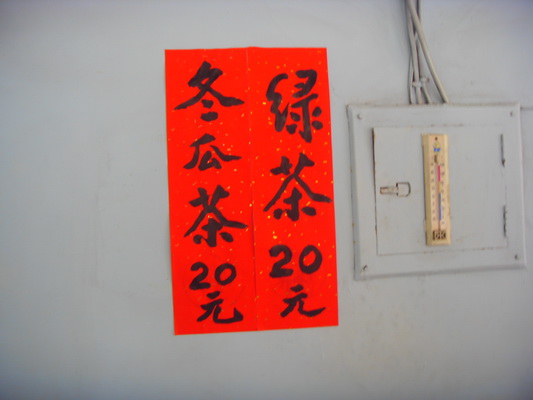 綠茶20元
冬瓜茶20元